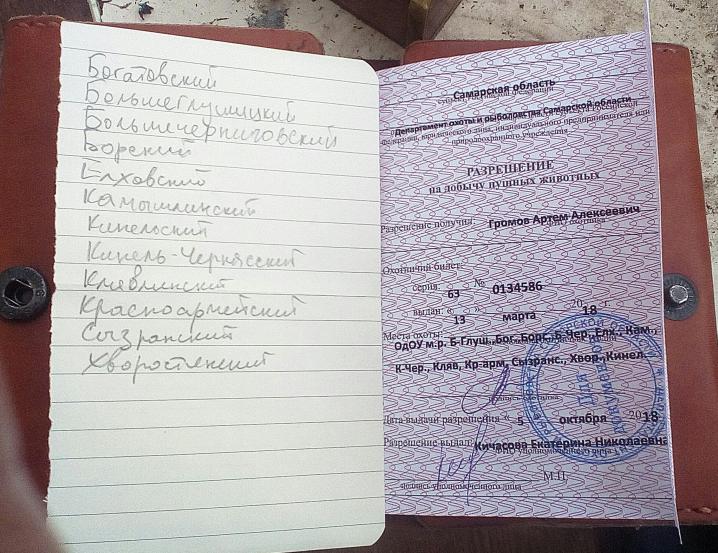 Богатовский
Большеглушицкий
Большечерниговский
Борский
Елховский
Камышлинский
Кинельский
Кинель-Черкасский
Клявлинский
Красноармейский
Сызранский
Хворостянский
Самарская область
субъект Российской Федерации
Департамент охоты и рыболовства Самарской области
Федерации, юридического лица, индивидуального предпринимателя или
природоохранного учреждения
РАЗРЕШЕНИЕ
на добычу пушных животных
Разрешение получил: Громов Артем Алексеевич
ФИО охотника
Охотничий билет:
серия 63 № 0134586
выдан: « 13 » марта 2018 г.
Места охоты:
ОдОУ м.р. Б-Глуш.,Бог.,Борс.,Б-Чер., Елх., Кам.,
К-Чер., Кляв, Кр-арм, Сызранс., Хвор.,Кинел.
подпись охотника
Дата выдачи разрешения « 5 октября 2018
Разрешение выдал: Кичасова Екатерина Николаевна
ФИО уполномоченного лица
М.П.
подпись уполномоченного лица
Для
документов